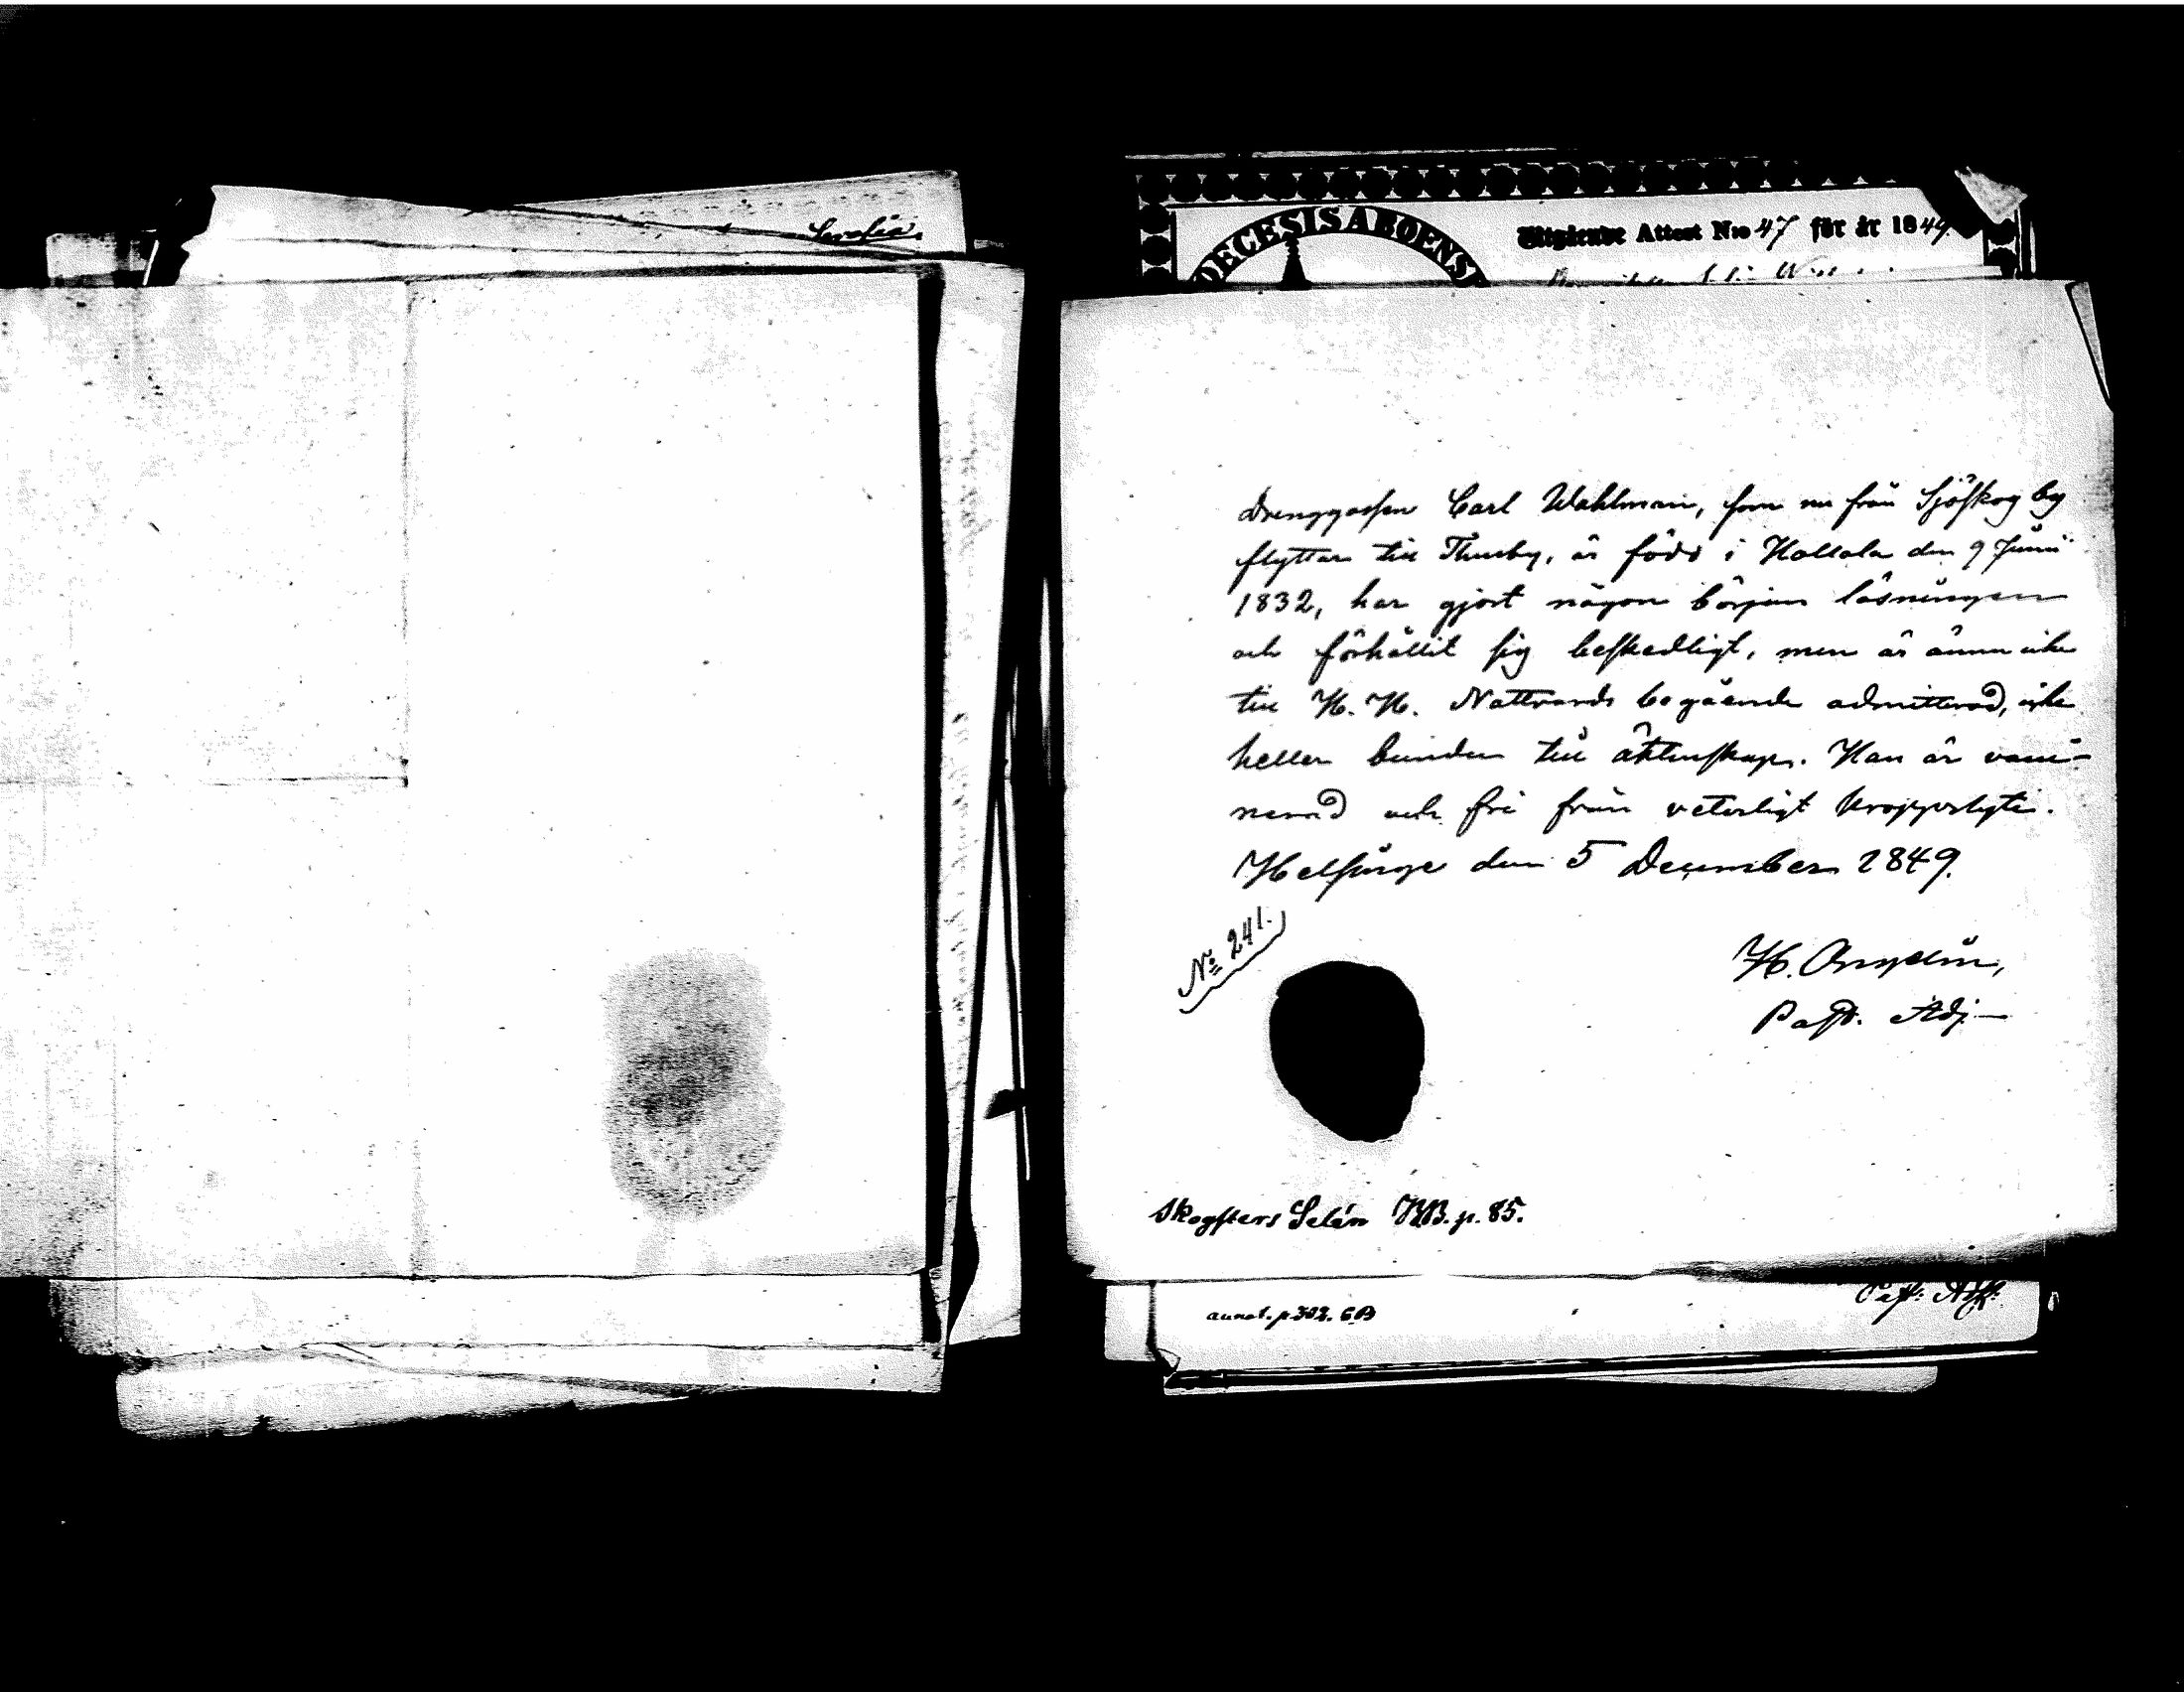 Sarofia.
DECESIS ABOENS
Utgående Attest N:ro 47 för år 1849.
Drenggossen Carl Wahlman, som nu från Sjöskog by
flyttar till Thusby, är född i Hollola den 9 Junii
1832, har gjort någon början läsningen
och förhållit sig beskedligt, men är ännu icke
till H. H. Nattvards begående admitterad, icke
heller bunden till äktenskap. Han är vacci-
nerad och fri från veterligt kroppslyte.
Helsinge den 5 December 1849.
No 241.
H.
Past. Adj.
Skogsters Selén KB. p. 85.
Past: Adj:
annot. p 302. CB